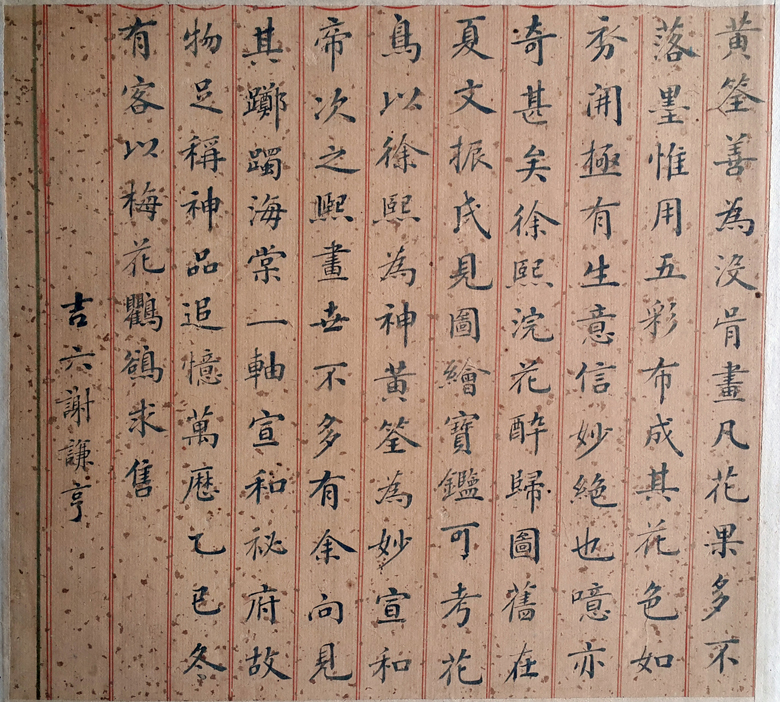 黃筌善為沒骨畫凡花果多不
落墨惟用五彩布成其花色如
秀開極有生意信妙絕也噫亦
奇甚矣徐熙浣花醉歸圖舊在
夏文振氏見圖繪寶鑑可考花
鳥以徐熙為神黃筌為妙宣和
帝次之熙畫世不多有余向見
其躑躅海棠一軸宣和祕府故
物足稱神品追憶萬曆乙巳冬
有客以梅花鸜鵒求售
吉六謝謙亨